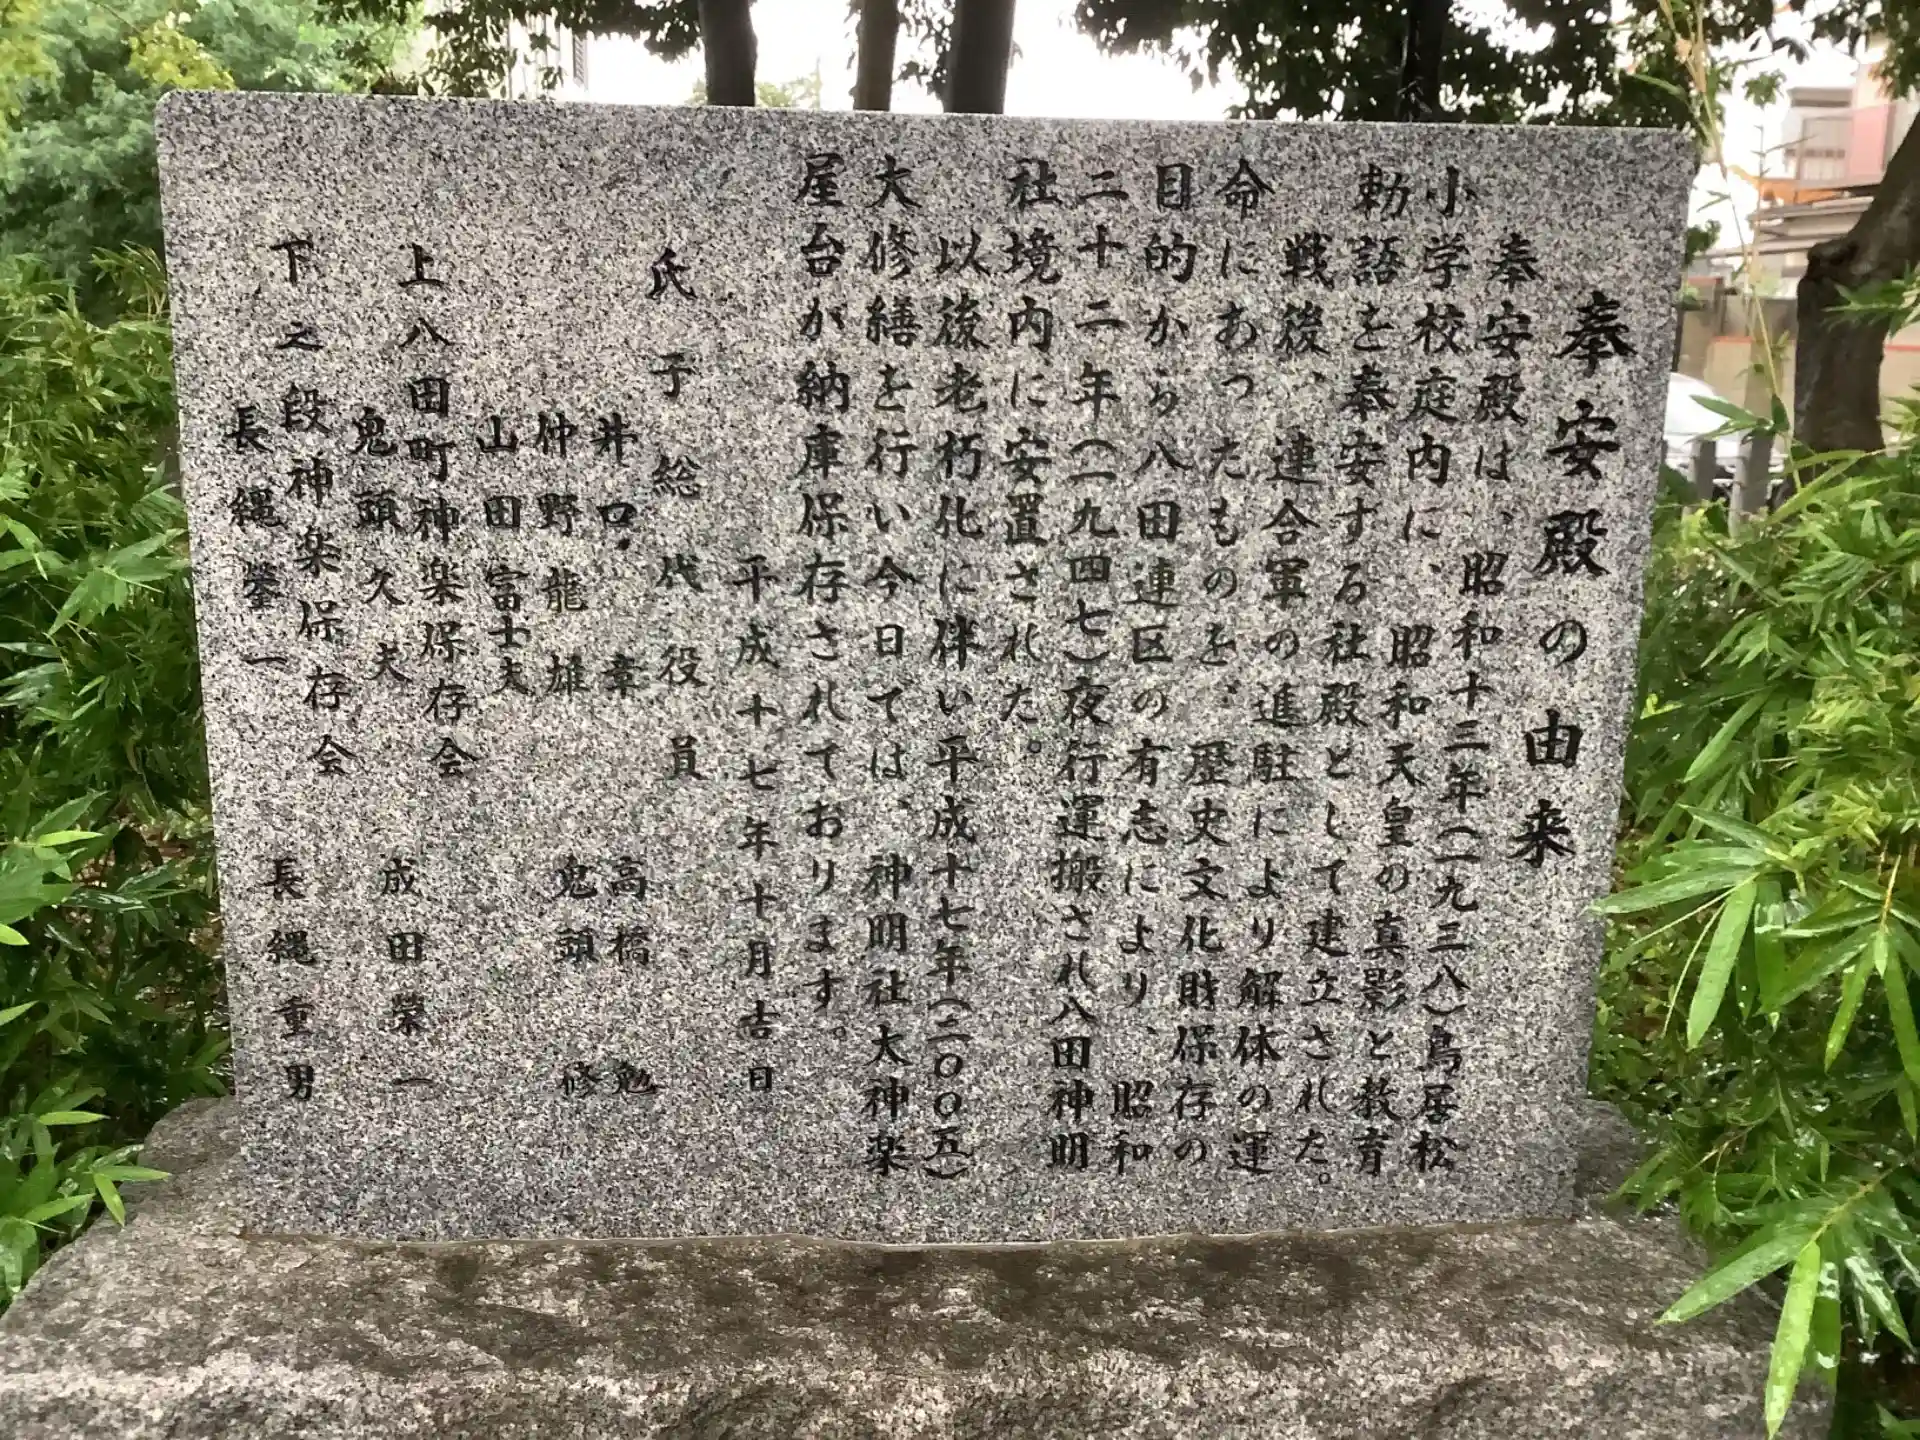 奉安殿の由来
奉安殿は、昭和十三年(一九三八)鳥居松
小学校庭内に、昭和天皇の真影と教育
勅語を奉安する社殿として建立された。
戦後、連合軍の進駐により解体の運
命にあったものを、歴史文化財保存の
目的から八田連区の有志により、昭和
二十二年(一九四七)夜行運搬され八田神明
社境内に安置された。
以後老朽化に伴い平成十七年(二〇〇五)
大修繕を行い今日では、神明社大神楽
屋台が納庫保存されております。
平成十七年十月吉日
氏子総代役員
井口 章 高橋 勉
仲野龍雄 鬼頭 修
山田富士夫
上八田町神楽保存会
鬼頭久夫 成田榮一
下之段神楽保存会
長縄鋆一 長縄重男